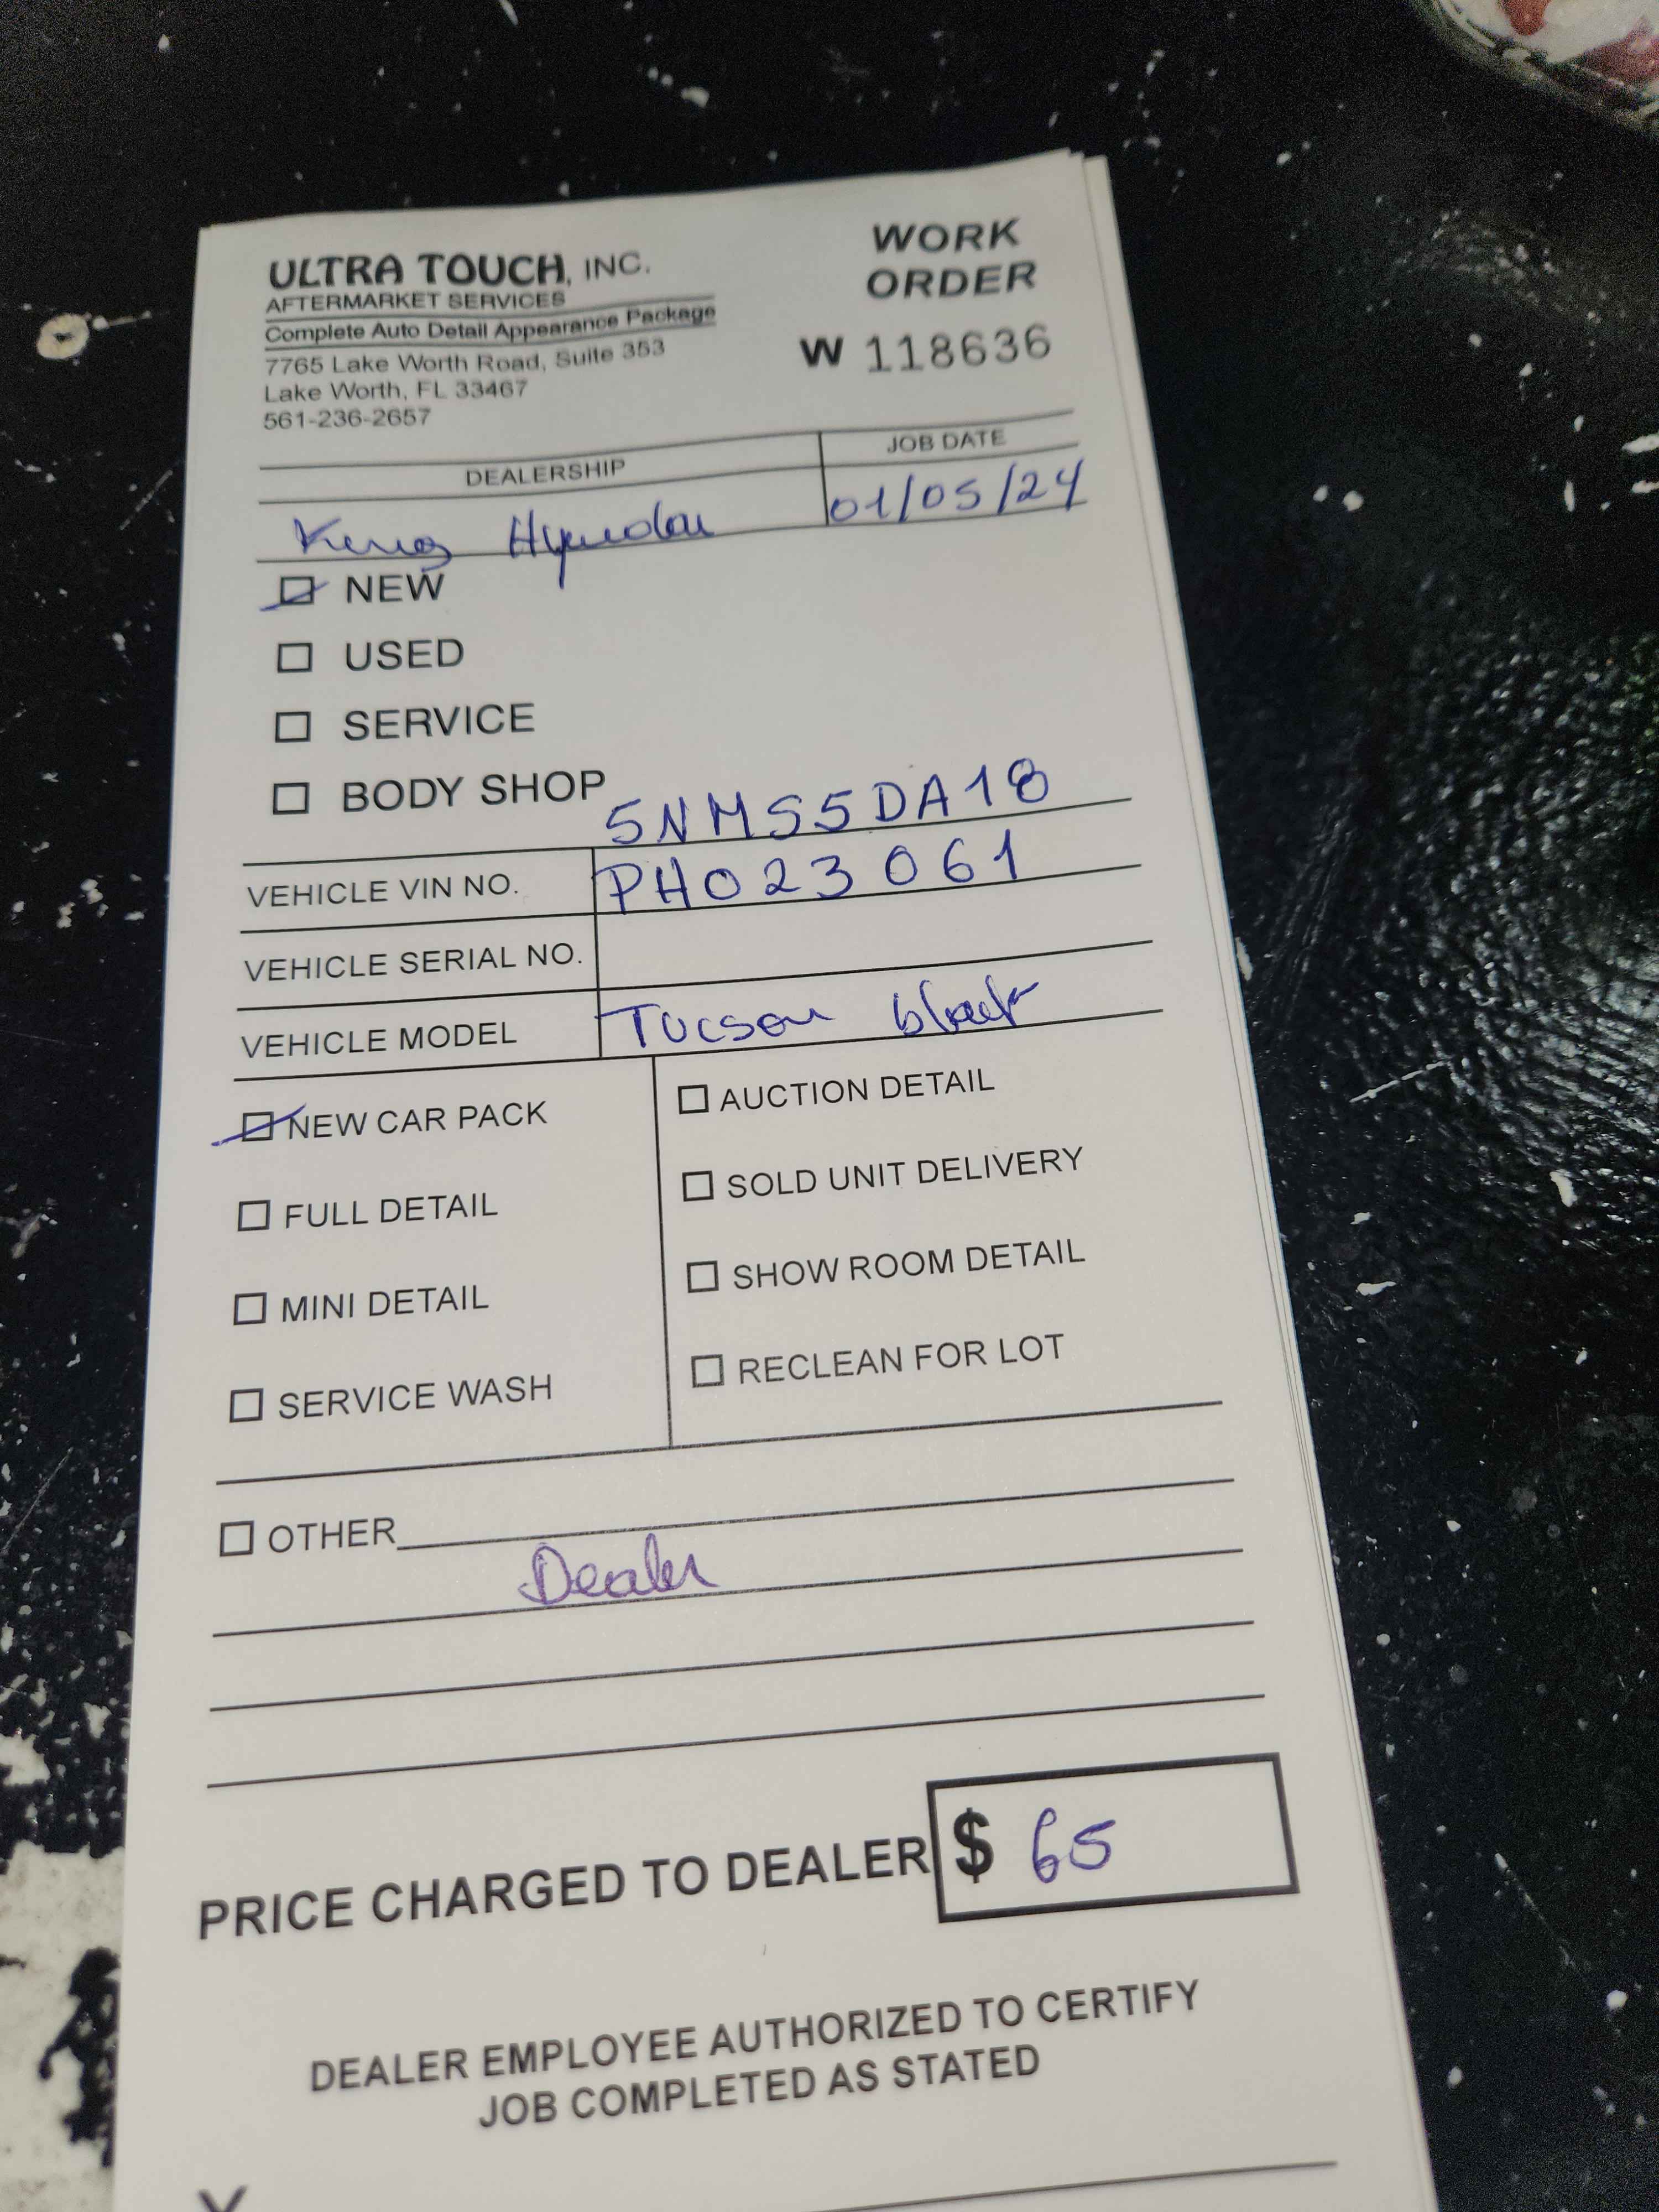 ULTRA TOUCH, INC.
AFTERMARKET SERVICES
Complete Auto Detail Appearance Package
7765 Lake Worth Road, Suite 353
Lake Worth, FL 33467
561-236-2657
WORK
ORDER
W 118636
DEALERSHIP
JOB DATE
King Hyundai
01/05/24
NEW
USED
SERVICE
BODY SHOP
5NMS5DA18
VEHICLE VIN NO. PH023061
VEHICLE SERIAL NO.
VEHICLE MODEL Tucson black
NEW CAR PACK
FULL DETAIL
MINI DETAIL
SERVICE WASH
AUCTION DETAIL
SOLD UNIT DELIVERY
SHOW ROOM DETAIL
RECLEAN FOR LOT
OTHER
Dealer
PRICE CHARGED TO DEALER $ 65
DEALER EMPLOYEE AUTHORIZED TO CERTIFY
JOB COMPLETED AS STATED
X